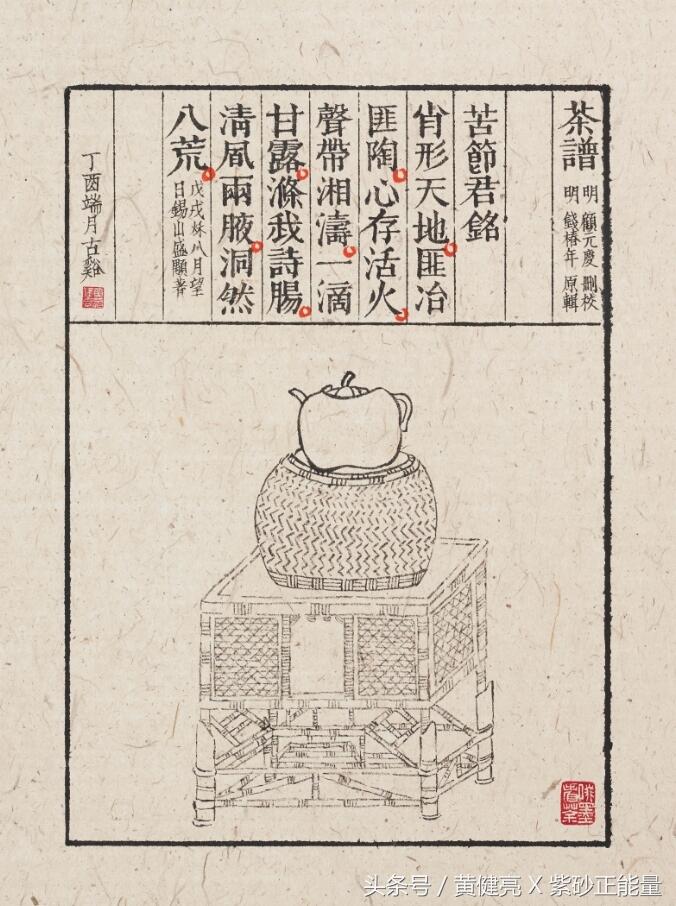 茶譜
明 顧元慶 刪校
明 錢椿年 原輯
苦節君銘
肖形天地匪冶
匪陶心存活火
聲帶湘濤一滴
甘露滌我詩腸
清風兩腋洞然
八荒
戊戌秌八月望
日錫山盛顒著
丁酉端月古谿
头条号 / 黄健亮 X 紫砂正能量